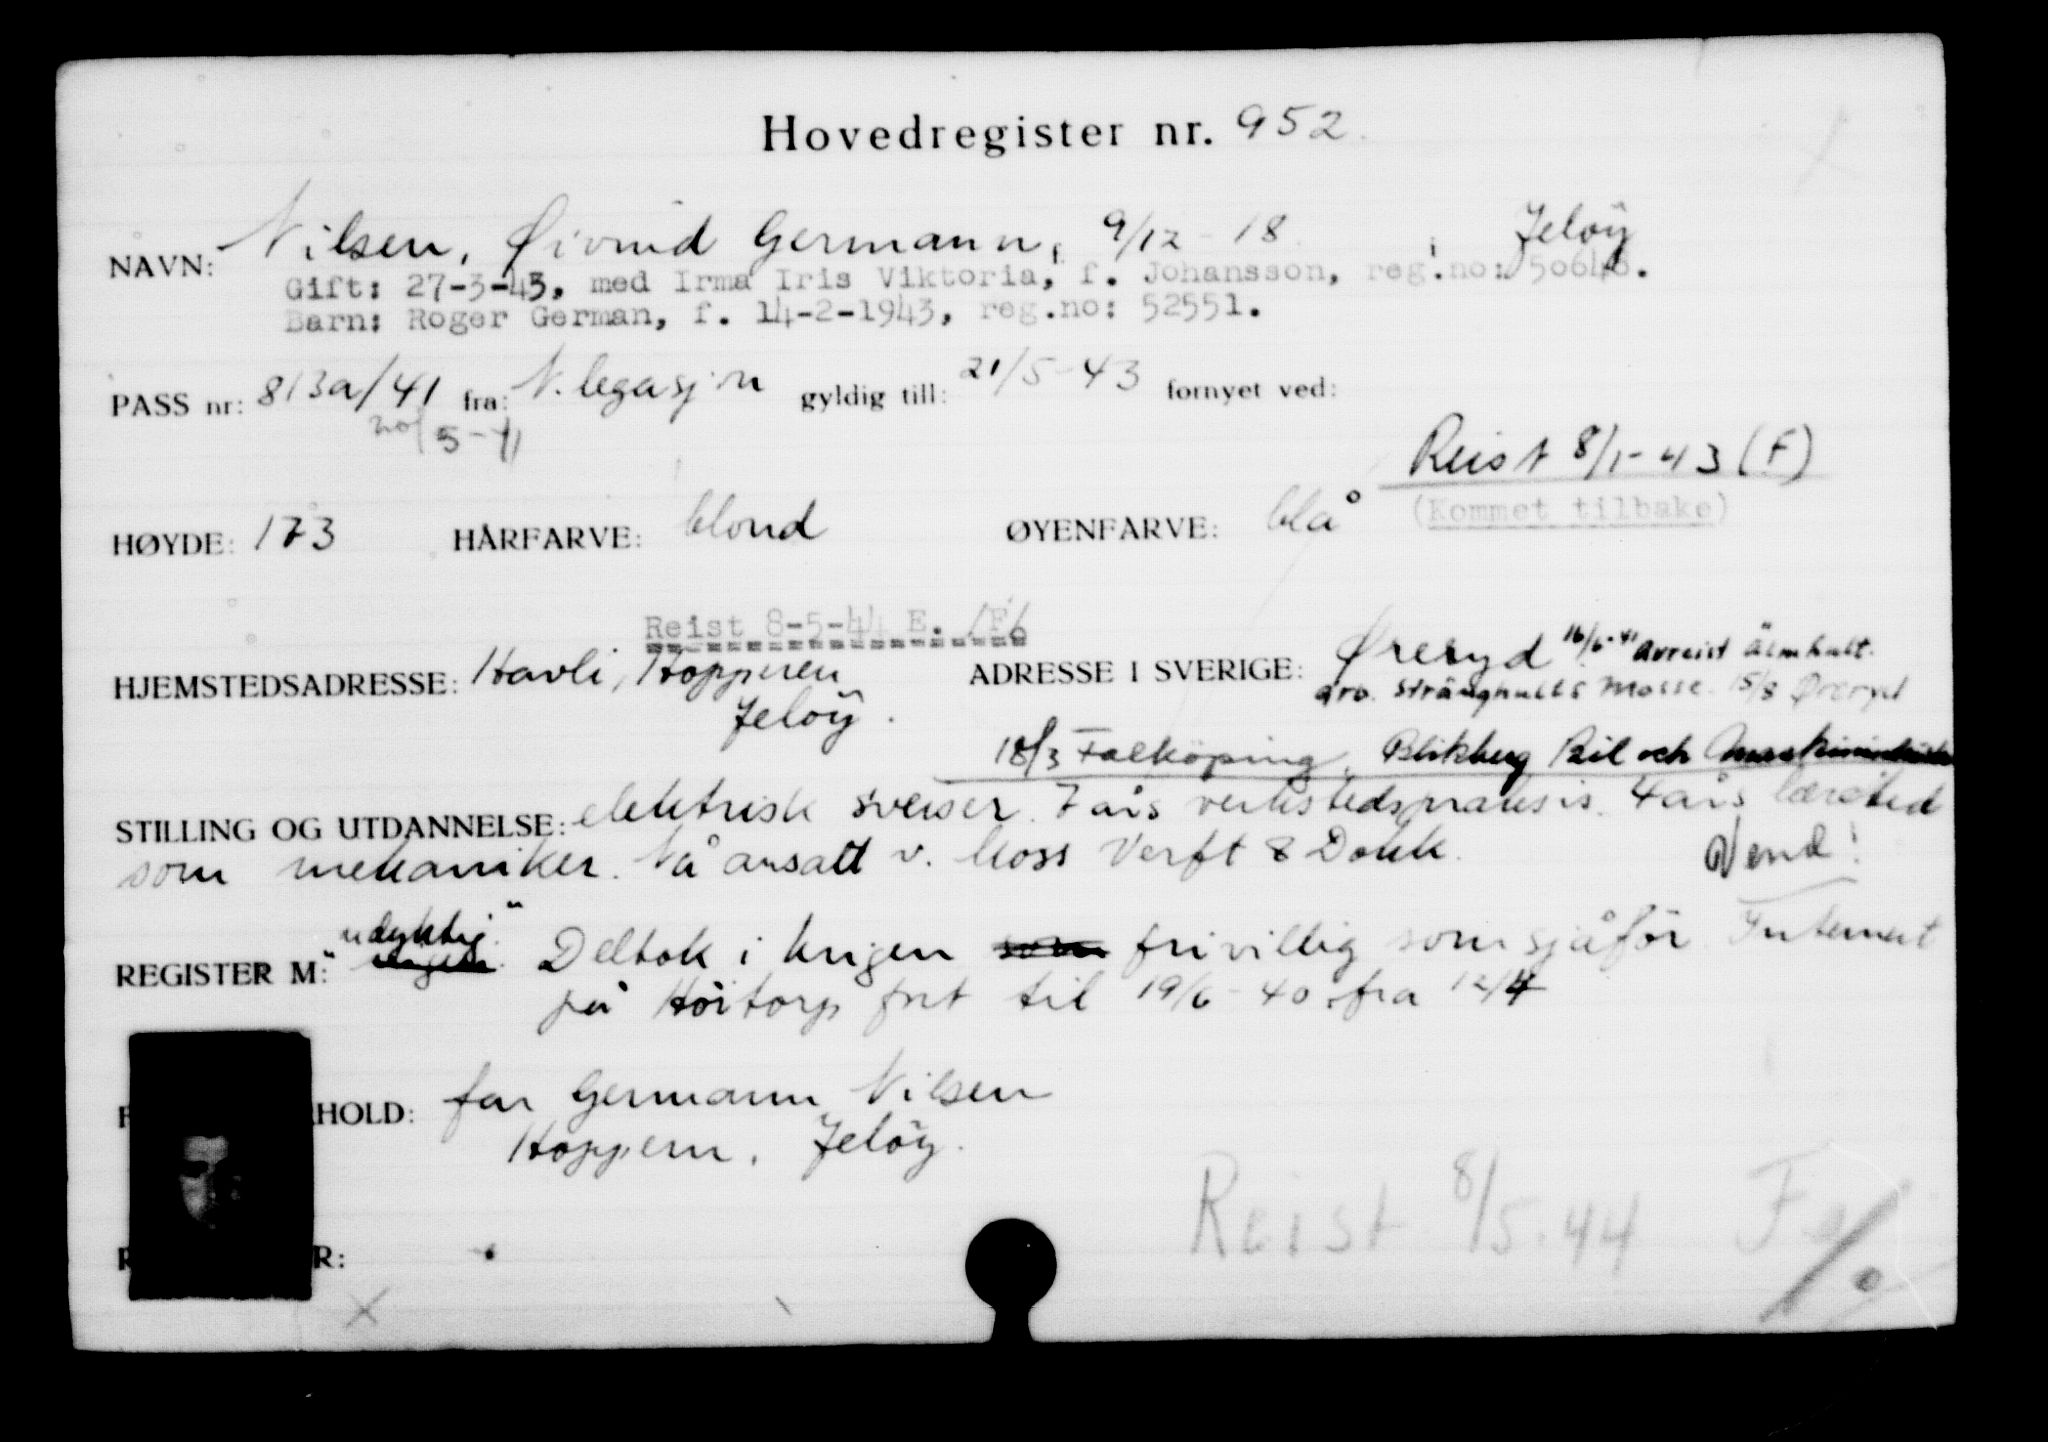 Hovedregister nr. 952
NAVN: Nilsen, Øivind Germann, 9/12-18 i Jeløy
Gift: 27-3-43, med Irma Iris Viktoria, f. Johansson, reg.no: 50648.
Barn: Roger German, f. 14-2-1943, reg.no: 52551.
PASS nr: 813a/41 fra: N. legasjon gyldig till: 21/5-43 fornyet ved:
20/5-41
Reist 8/1-43 (F)
(Kommet tilbake)
HØYDE: 173 HÅRFARVE: blond ØYENFARVE: blå
Reist 8-5-44 E. /F/.
HJEMSTEDSADRESSE: Havli, Hoppern Jeløy. ADRESSE I SVERIGE: Øreryd 16/6-41 avreist Älmhult.
arb. Strånghults Mosse. 15/8 Øreryd
18/3 Falköping, Blikberg Bil och
STILLING OG UTDANNELSE: elektrisk sveiser. 7 års verkstedspraksis. 4 års læretid
som mekaniker. Nå ansatt v. Moss Verft & Dokk. Vend!
REGISTER M: "udyktig." Deltok i krigen som frivillig som sjåfør Internert
på Høitorp fort til 19/6-40 fra 12/4
HOLD: far Germann Nilsen
Hoppern, Jeløy.
Reist 8/5.44 F
R: